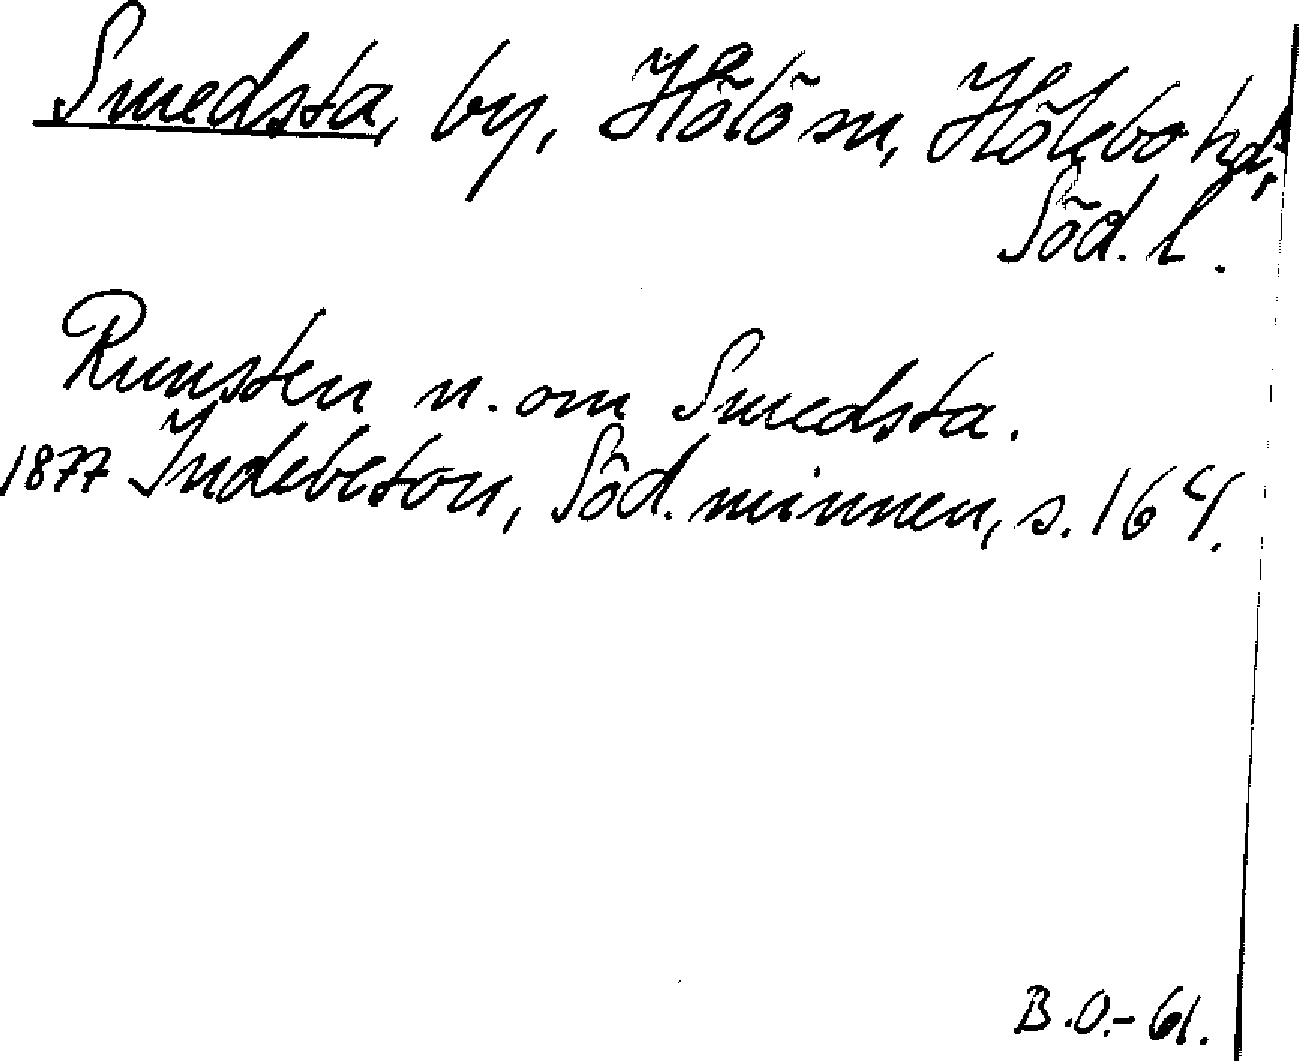 Smedsta, by, Hölö sn, Hölebo hd,
Söd. l.
Runsten n. om Smedsta.
1877 Indebetou, Söd. minnen, s. 164.
B.O.- 61.